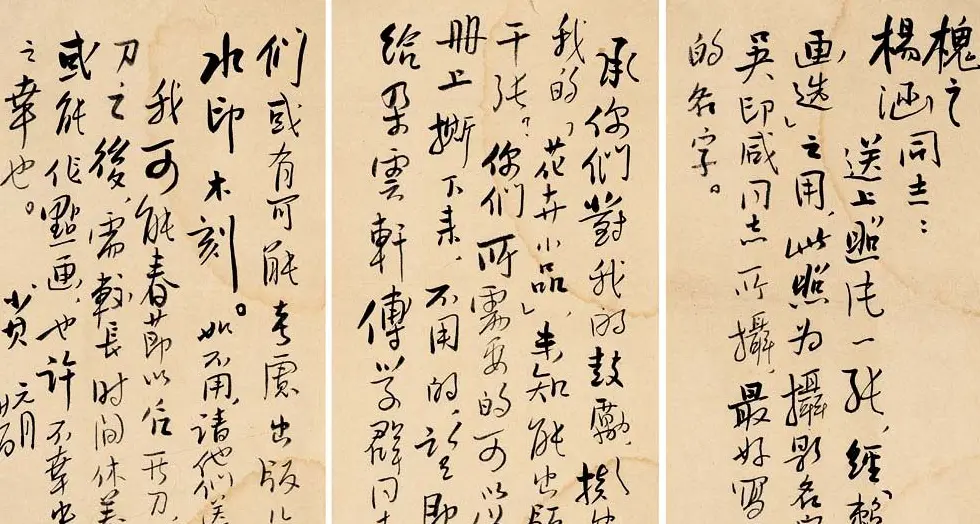 槐之
楊涵同志：
送上照片一张，經
画選」之用，此照为攝影名
吳印咸同志所攝，最好写
的名字。
承你們對我的鼓勵，拟
我的「花卉小品」，未知能出版
干张？你们所需要的可以
册上撕下来，不用的，望即
给朵雲軒傅学群同
们或有可能考慮出版几
水印木刻。如不用，请他们送
我可能春節以后开刀，
刀之後，需較長时间休养
或能作點画，也许不幸
之幸也。
少其 元月